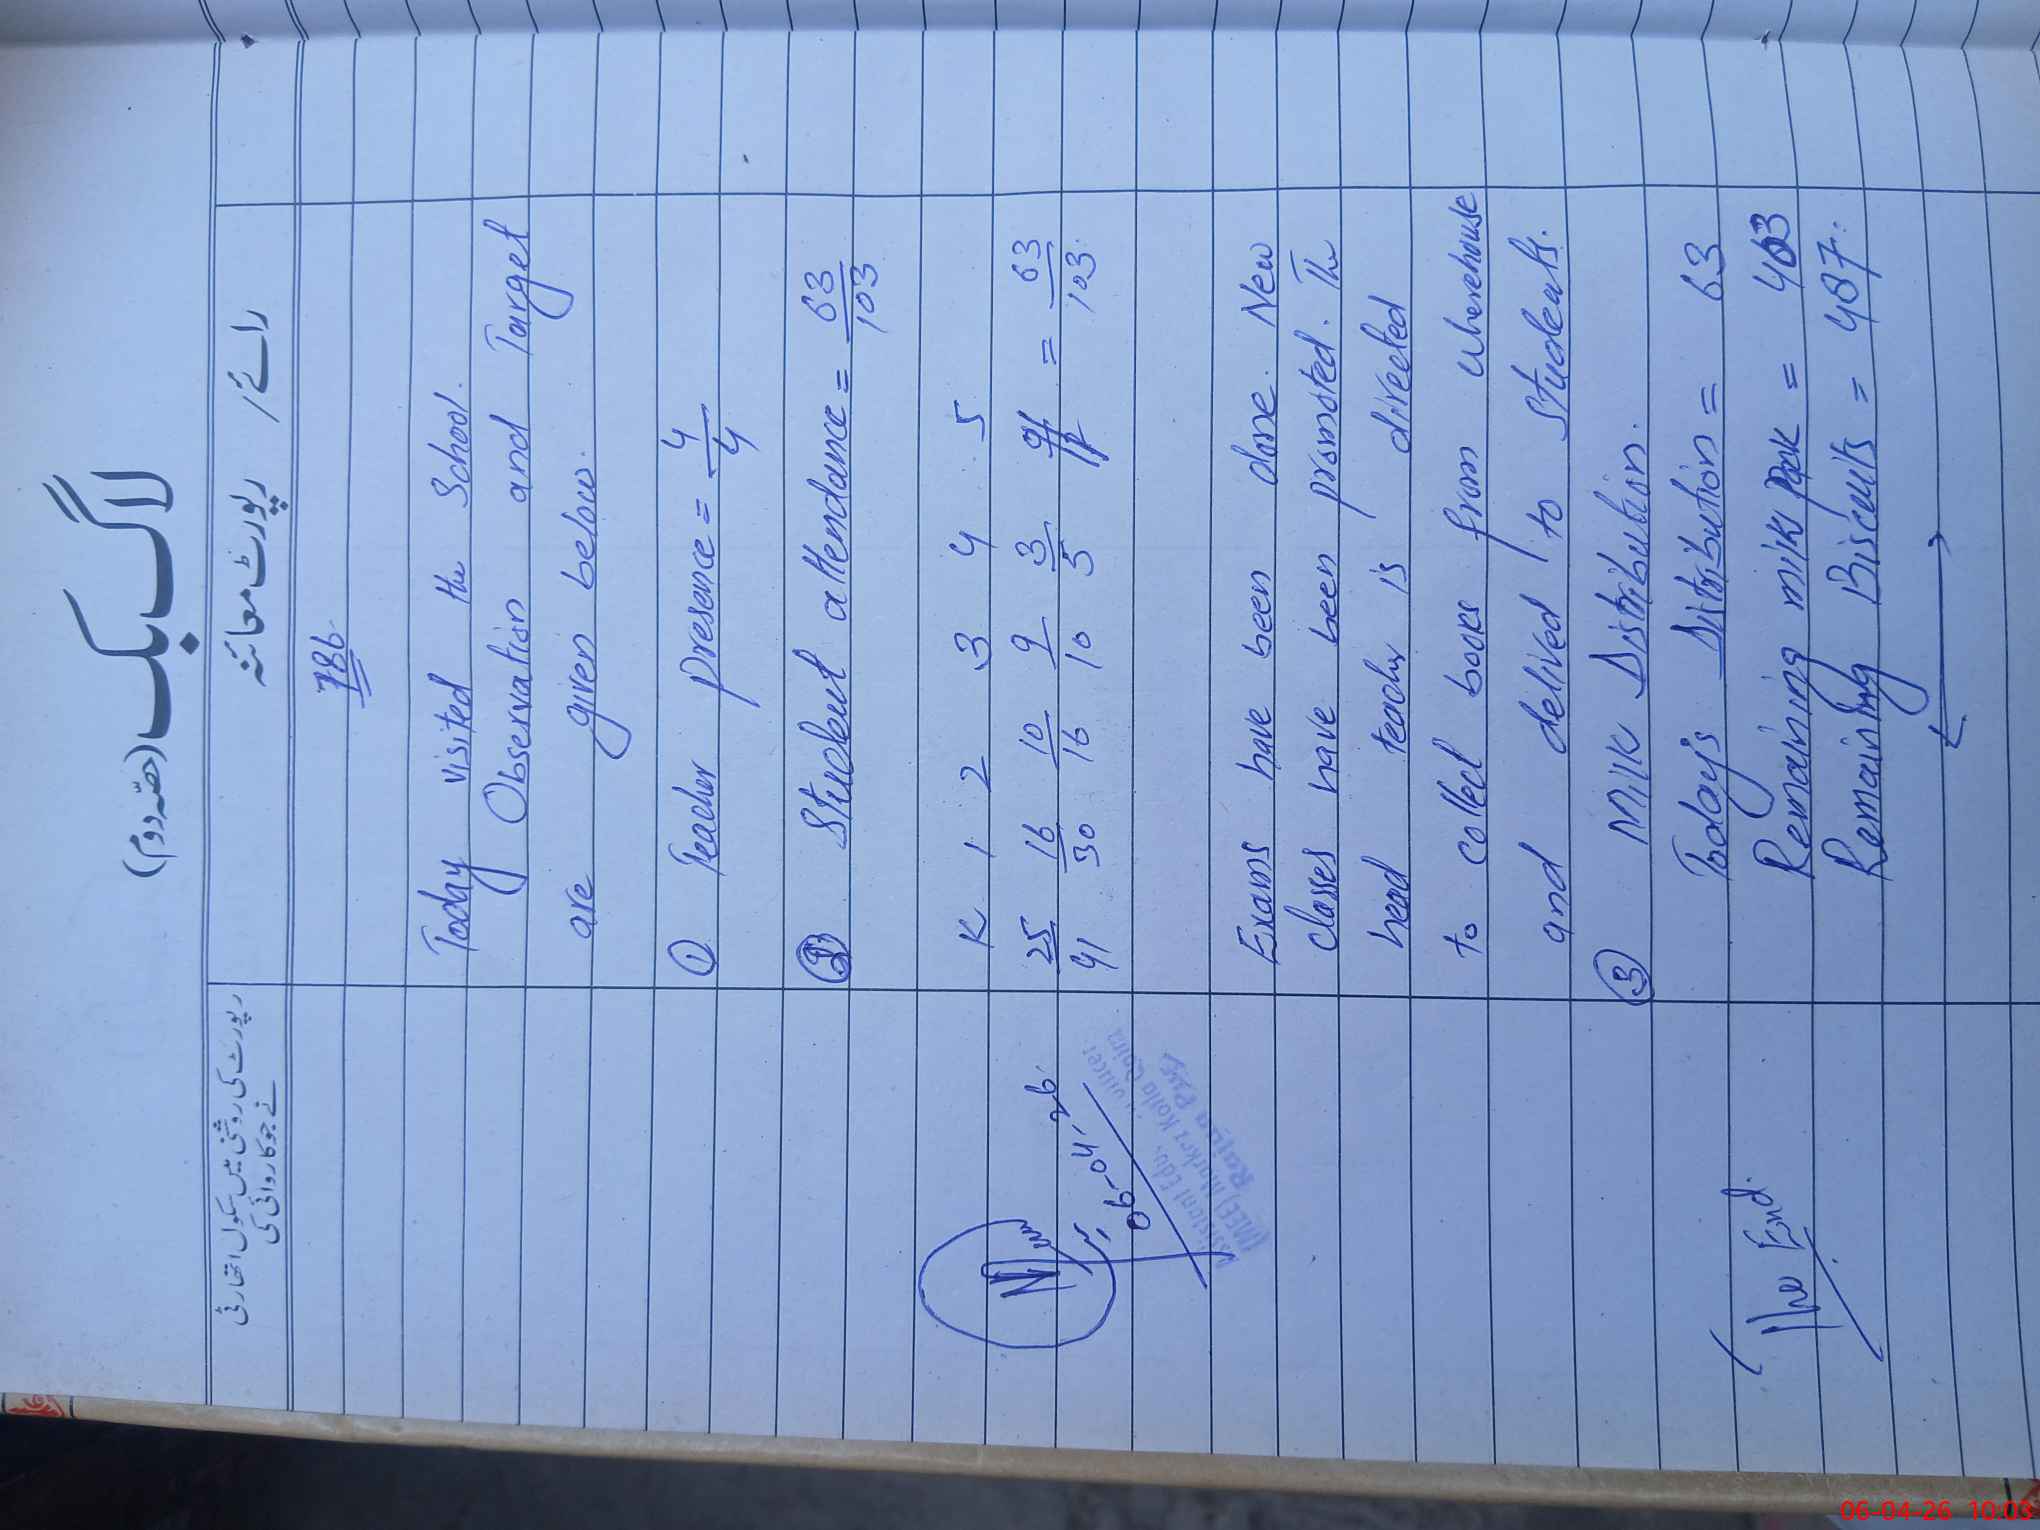 لاگ بک (حصّہ دوم)
رپورٹ کی روشنی میں سکول اتھارٹی
نے جو کاروائی کی
رپورٹ معائنہ
رائے /
786
Today visited the School.
Observation and Target
are given below.
① Teacher presence = 4/4
② Student attendance = 63/103
K 1 2 3 4 5
25/41 16/30 10/16 9/10 3/5 = 63/103
Exams have been done. New
classes have been promoted. The
head teacher is directed
to collect books from wherehouse
and delived to students.
③ Milk Distribution.
Today's Distribution = 63
Remaining milk Pack = 463
Remaining Biscuits = 487.
06-04-26
Assistant Edu. Officer
(MEE) Markaz Kotla
The End.
06-04-26 10:08